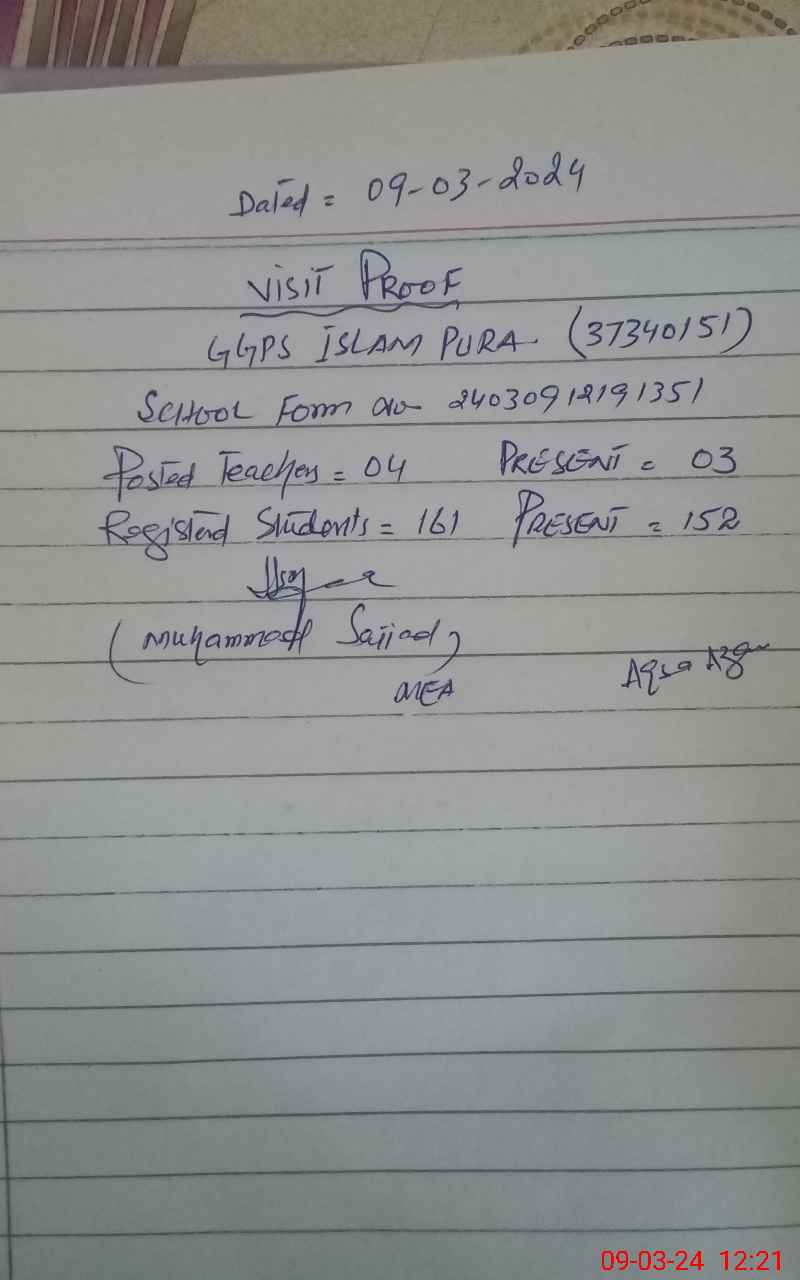 Dated = 09-03-2024
VISIT PROOF
GGPS ISLAM PURA (37340151)
SCHOOL Form No 24030912191351
Posted Teachers = 04 PRESENT = 03
Registerd Students = 161 PRESENT = 152
(Muhammad Sajjad)
MEA
Aqsa
09-03-24 12:21